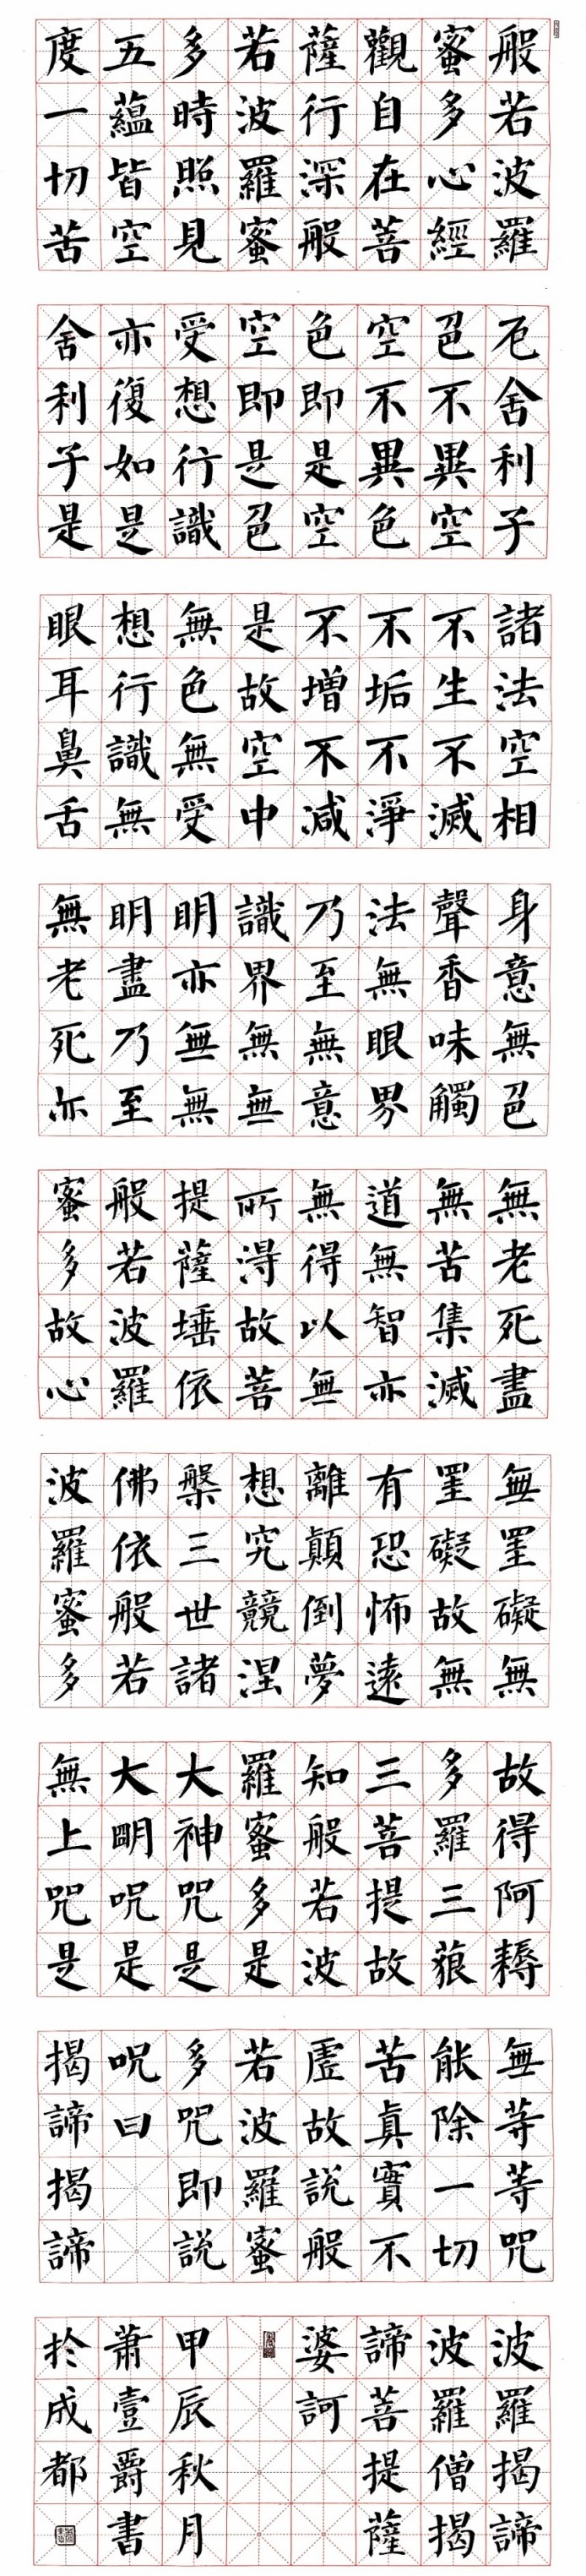 般若波羅
蜜多心經
觀自在菩
薩行深般
若波羅蜜
多時照見
五蘊皆空
度一切苦
厄舍利子
色不異空
空不異色
色即是空
空即是色
受想行識
亦復如是
舍利子是
諸法空相
不生不滅
不垢不淨
不增不減
是故空中
無色無受
想行識無
眼耳鼻舌
身意無色
聲香味觸
法無眼界
乃至無意
識界無無
明亦無無
明盡乃至
無老死亦
無老死盡
無苦集滅
道無智亦
無得以無
所得故菩
提薩埵依
般若波羅
蜜多故心
無罣礙無
罣礙故無
有恐怖遠
離顛倒夢
想究竟涅
槃三世諸
佛依般若
波羅蜜多
故得阿耨
多羅三藐
三菩提故
知般若波
羅蜜多是
大神咒是
大明咒是
無上咒是
無等等咒
能除一切
苦真實不
虛故說般
若波羅蜜
多咒即說
咒曰
揭諦揭諦
波羅揭諦
波羅僧揭
諦菩提薩
婆訶
甲辰秋月
蕭壹爵書
於成都